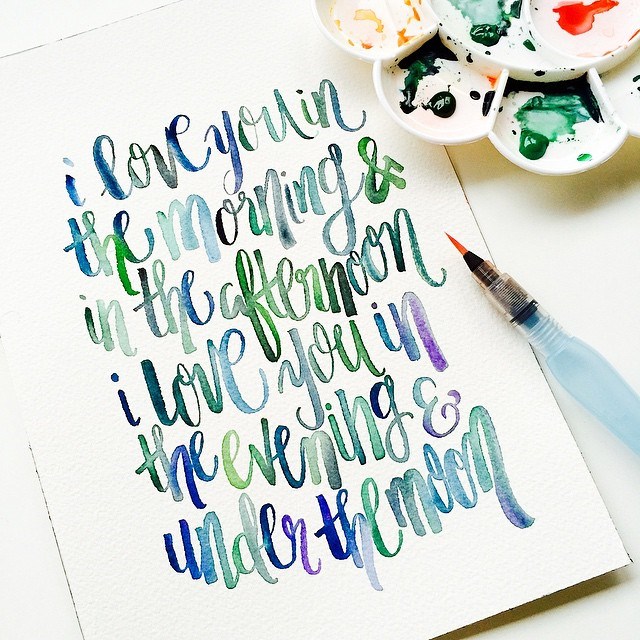 i love you in
the morning &
in the afternoon
i love you in
the evening &
under the moon